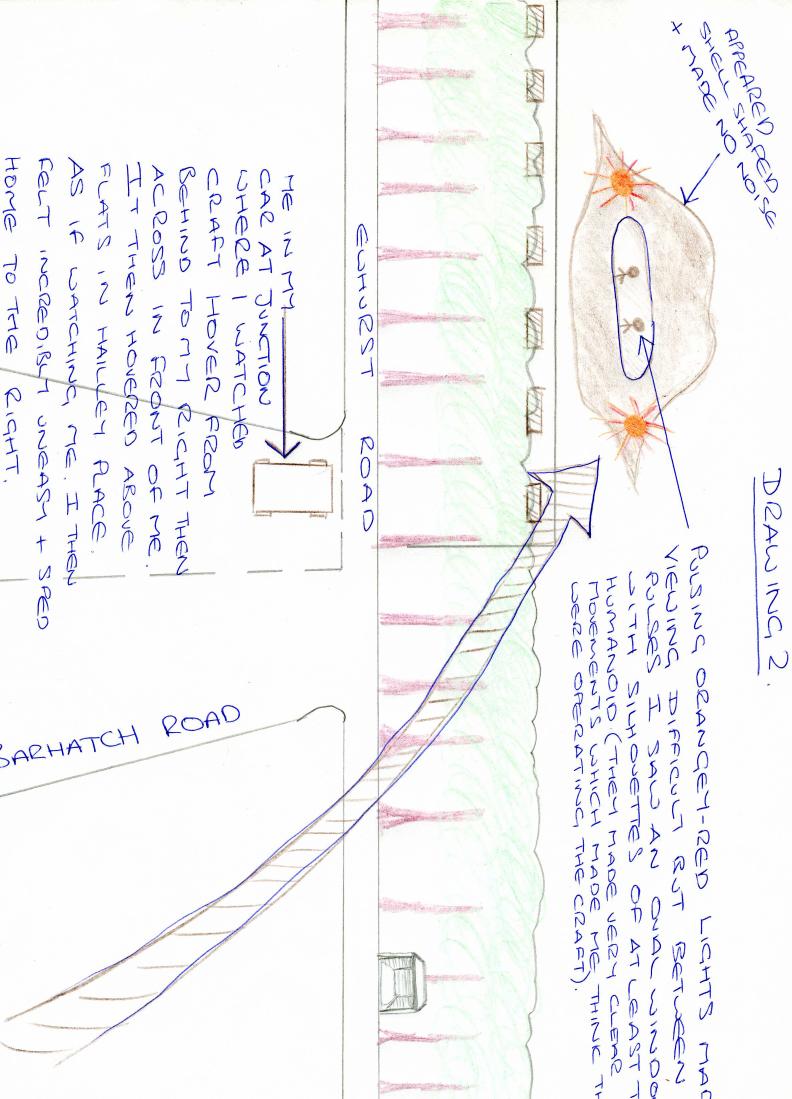 DRAWING 2.
APPEARED
SHELL SHAPED
+ MADE NO NOISE
PULSING ORANGEY-RED LIGHTS MAD
VIEWING DIFFICULT BUT BETWEEN
PULSES I SAW AN OVAL WINDO
WITH SILHOUETTES OF AT LEAST T
HUMANOID (THEY MADE VERY CLEAR
MOVEMENTS WHICH MADE ME THINK TH
WERE OPERATING THE CRAFT).
EWHURST ROAD
ME IN MY
CAR AT JUNCTION
WHERE I WATCHED
CRAFT HOVER FROM
BEHIND TO MY RIGHT THEN
ACROSS IN FRONT OF ME.
IT THEN HOVERED ABOVE
FLATS IN HAILLEY PLACE.
AS IF WATCHING ME. I THEN
FELT INCREDIBLY UNEASY + SPED
HOME TO THE RIGHT.
BARHATCH ROAD